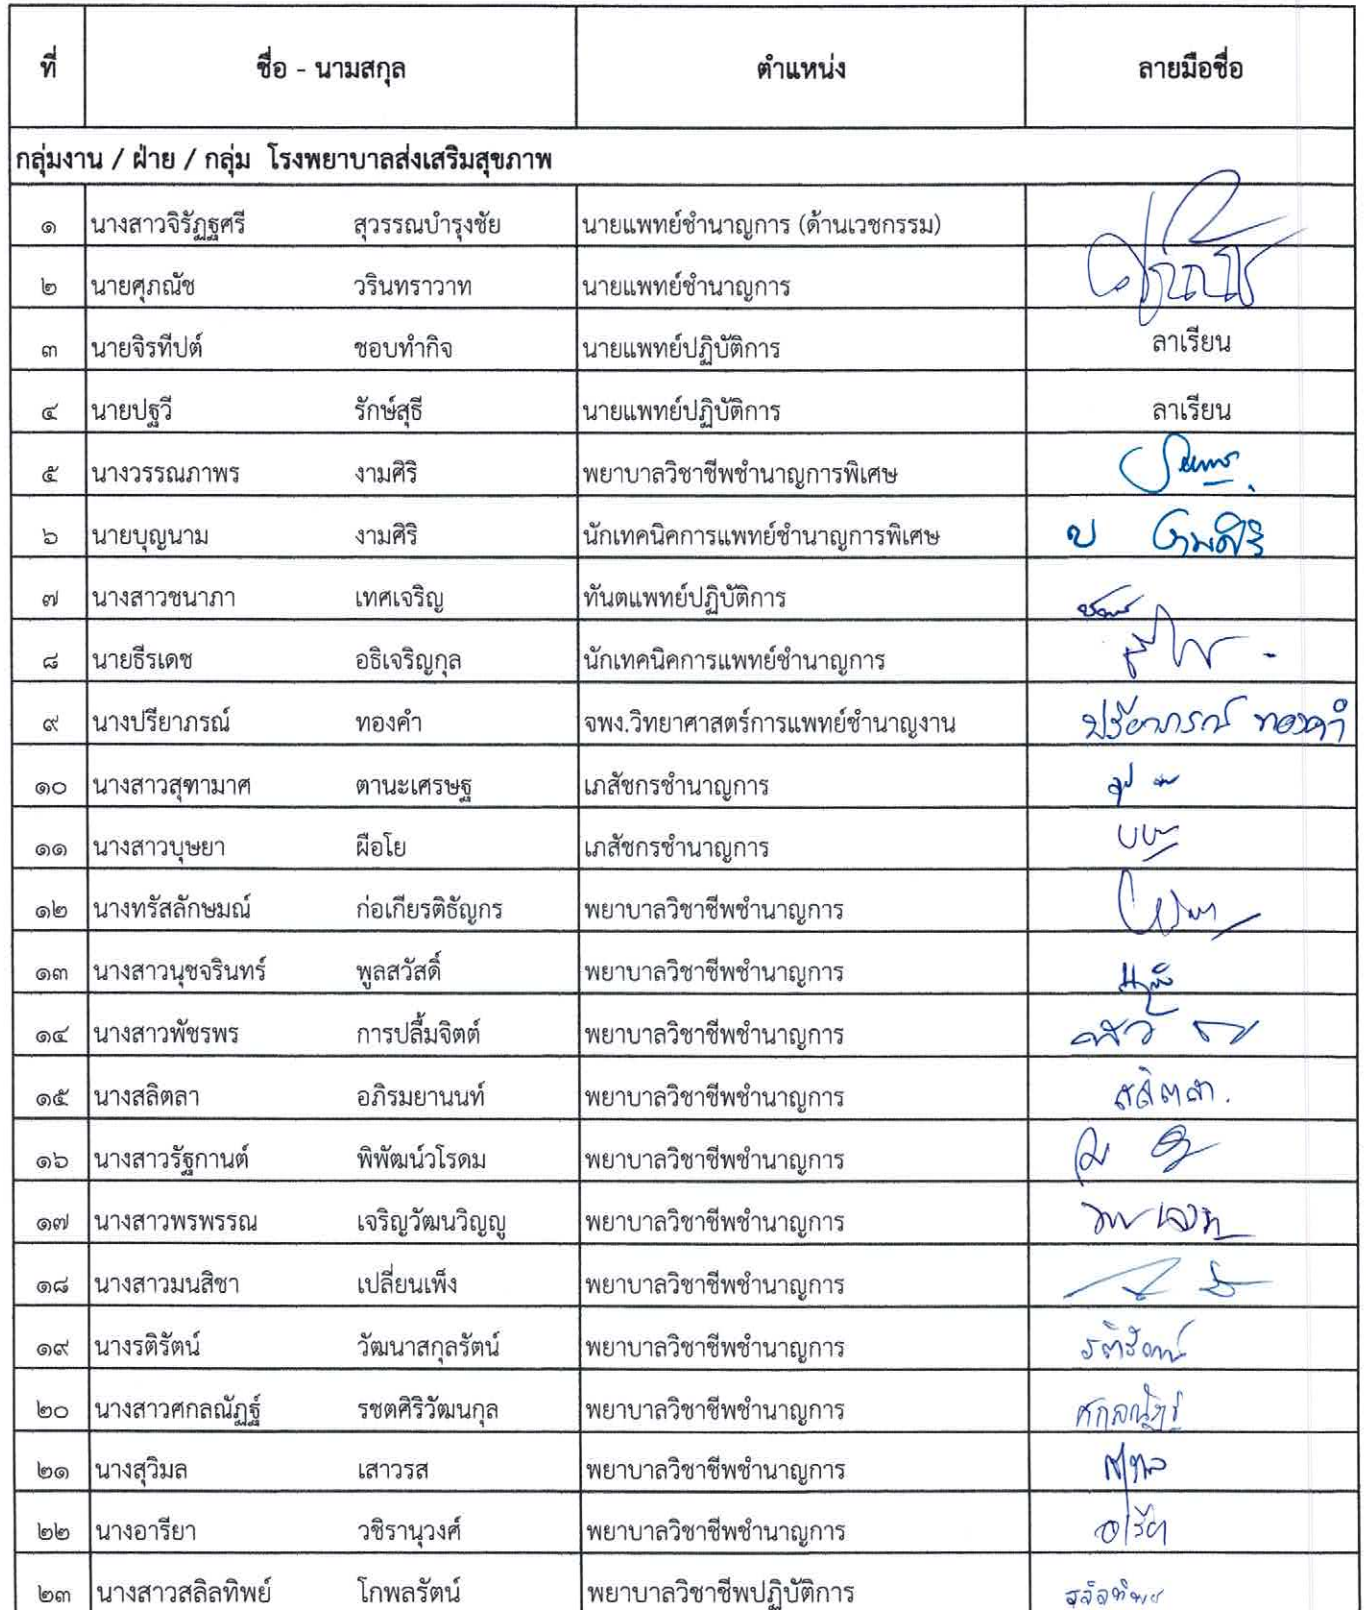 ที่ ชื่อ - นามสกุล ตำแหน่ง ลายมือชื่อ
กลุ่มงาน / ฝ่าย / กลุ่ม โรงพยาบาลส่งเสริมสุขภาพ
๑ นางสาวจิรัฏฐศรี สุวรรณบำรุงชัย นายแพทย์ชำนาญการ (ด้านเวชกรรม)
๒ นายศุภณัช วรินทราวาท นายแพทย์ชำนาญการ
๓ นายจิรทีปต์ ชอบทำกิจ นายแพทย์ปฏิบัติการ ลาเรียน
๔ นายปฐวี รักษ์สุธี นายแพทย์ปฏิบัติการ ลาเรียน
๕ นางวรรณภาพร งามศิริ พยาบาลวิชาชีพชำนาญการพิเศษ
๖ นายบุญนาม งามศิริ นักเทคนิคการแพทย์ชำนาญการพิเศษ บ งามศิริ
๗ นางสาวชนาภา เทศเจริญ ทันตแพทย์ปฏิบัติการ
๘ นายธีรเดช อธิเจริญกุล นักเทคนิคการแพทย์ชำนาญการ
๙ นางปรียาภรณ์ ทองคำ จพง.วิทยาศาสตร์การแพทย์ชำนาญงาน ปรียาภรณ์ ทองคำ
๑๐ นางสาวสุฑามาศ ตานะเศรษฐ เภสัชกรชำนาญการ
๑๑ นางสาวบุษยา ผือโย เภสัชกรชำนาญการ
๑๒ นางทรัสลักษมณ์ ก่อเกียรติธัญกร พยาบาลวิชาชีพชำนาญการ
๑๓ นางสาวนุชจรินทร์ พูลสวัสดิ์ พยาบาลวิชาชีพชำนาญการ
๑๔ นางสาวพัชรพร การปลื้มจิตต์ พยาบาลวิชาชีพชำนาญการ
๑๕ นางสลิตลา อภิรมยานนท์ พยาบาลวิชาชีพชำนาญการ สลิตลา.
๑๖ นางสาวรัฐกานต์ พิพัฒน์วโรดม พยาบาลวิชาชีพชำนาญการ
๑๗ นางสาวพรพรรณ เจริญวัฒนวิญญู พยาบาลวิชาชีพชำนาญการ
๑๘ นางสาวมนสิชา เปลี่ยนเพ็ง พยาบาลวิชาชีพชำนาญการ
๑๙ นางรติรัตน์ วัฒนาสกุลรัตน์ พยาบาลวิชาชีพชำนาญการ รติรัตน์
๒๐ นางสาวศกลณัฏฐ์ รชตศิริวัฒนกุล พยาบาลวิชาชีพชำนาญการ ศกลณัฏฐ์
๒๑ นางสุวิมล เสาวรส พยาบาลวิชาชีพชำนาญการ
๒๒ นางอารียา วชิรานุวงศ์ พยาบาลวิชาชีพชำนาญการ อารียา
๒๓ นางสาวสลิลทิพย์ โกพลรัตน์ พยาบาลวิชาชีพปฏิบัติการ สลิลทิพย์